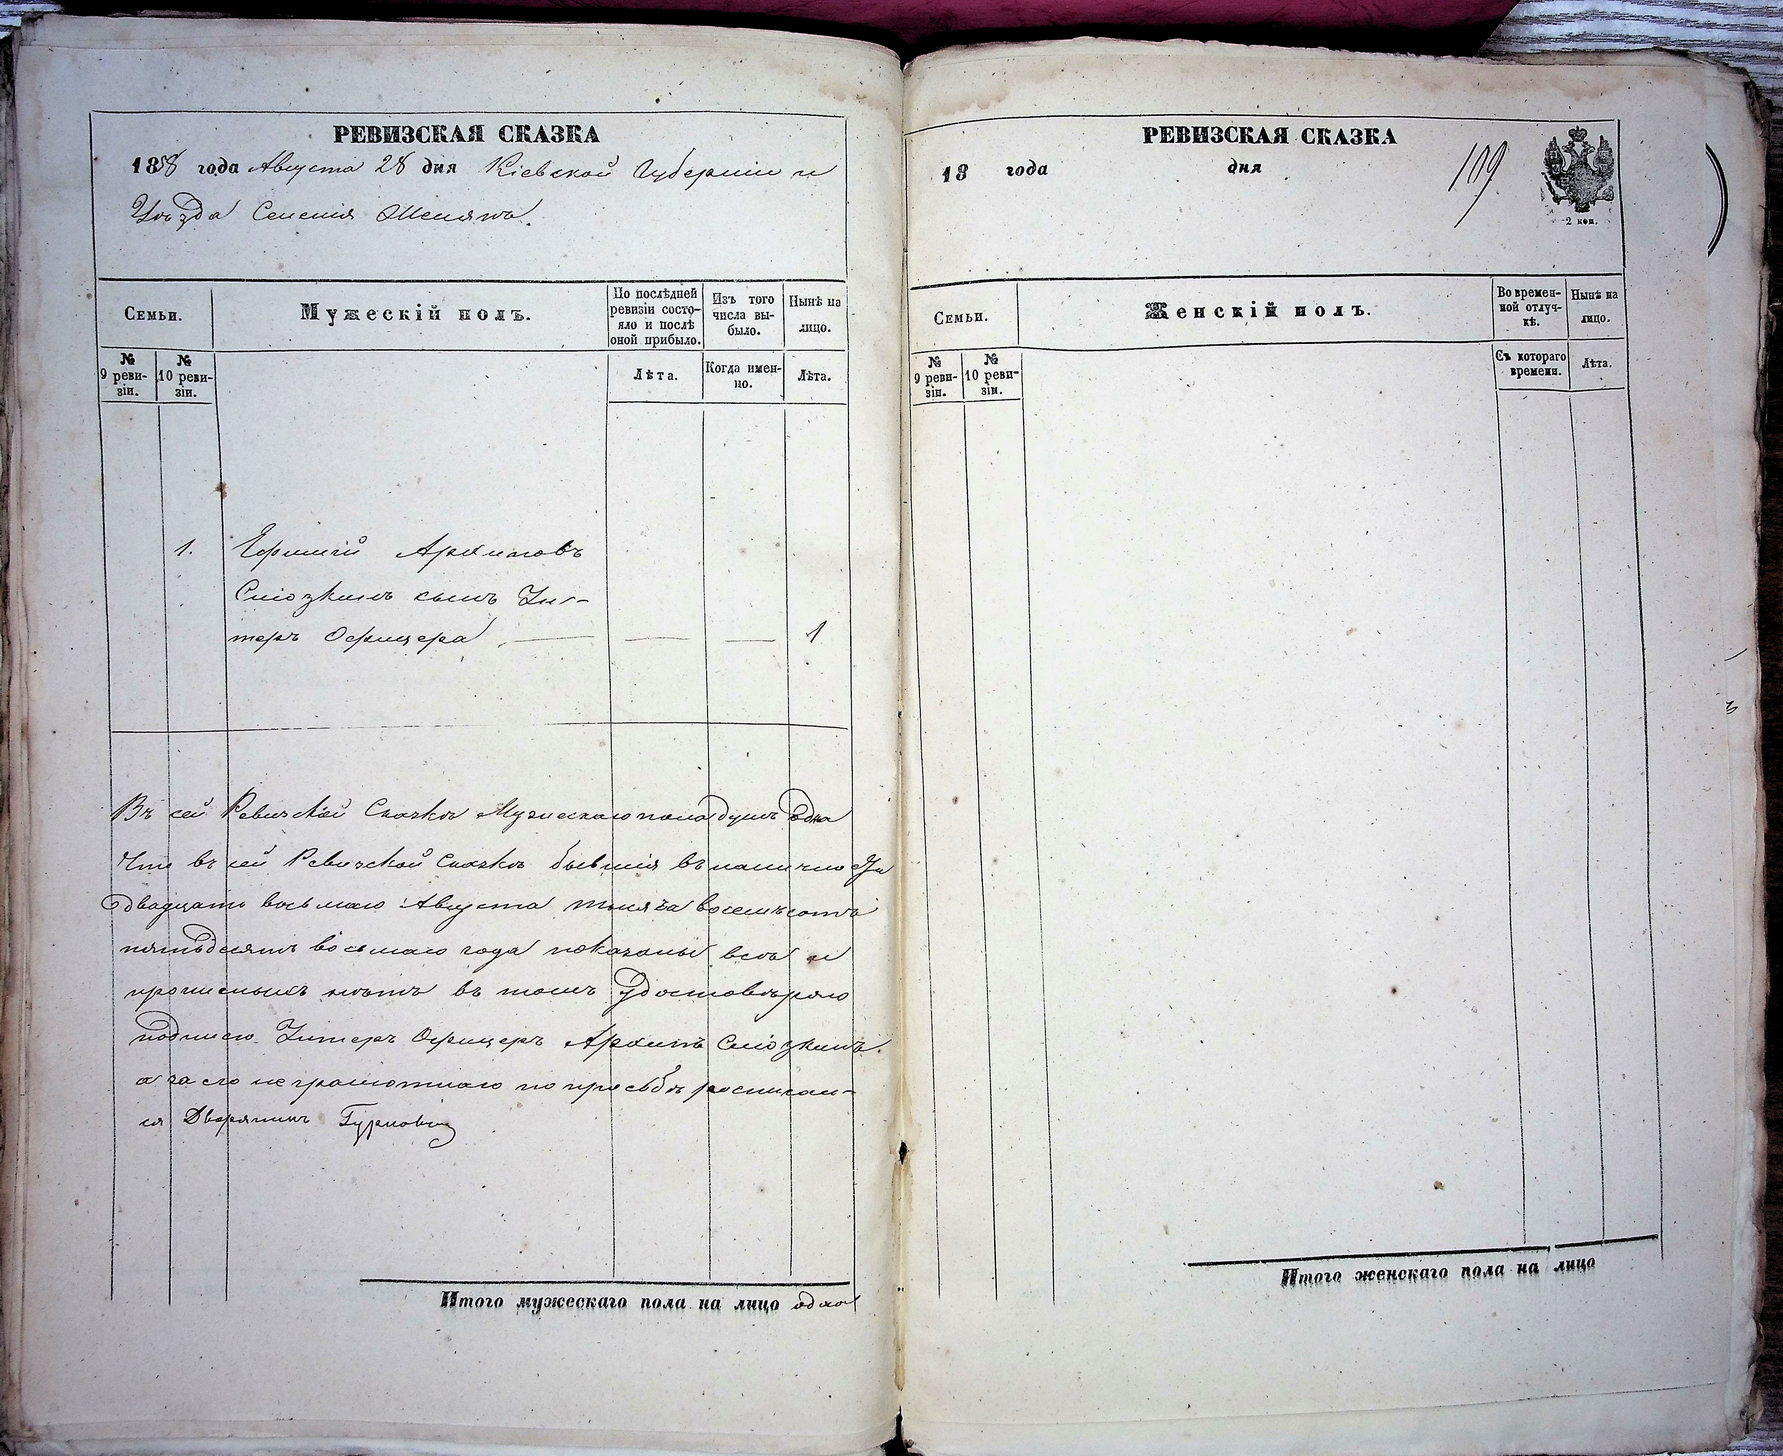 РЕВИЗСКАЯ СКАЗКА
1858 года Августа 28 дня Кіевской Губерніи и
Уѣзда Селенія
Семьи.
Мужескій полъ.
По послѣдней ревизіи состо-
яло и послѣ
оной прибыло.
Изъ того
числа вы-
было.
Нынѣ на
лицо.
№
9 реви-
зіи.
№
10 реви-
зіи.
Лѣта.
Когда имен-
но.
Лѣта.
1. Ефимій Архиповъ
сынъ Ун-
теръ Офицера 1
Въ сей Ревизской Сказкѣ Мужескаго пола душъ одна
Что въ сей Ревизской Сказкѣ бывшія въ налично
двадцать восьмаго Августа тысяча восемъсотъ
пятьдесятъ восьмаго года показаны всѣ и
прописныхъ нѣтъ въ томъ удостовѣряю
подписю Унтеръ Офицеръ Архипъ
а за его неграмотнаго по просьбѣ росписал-
ся Дворянинъ
Итого мужескаго пола на лицо одна
РЕВИЗСКАЯ СКАЗКА
18 года дня
109
2 коп.
Семьи.
Женскій полъ.
Во времен-
ной отлуч-
кѣ.
Нынѣ на
лицо.
№
9 реви-
зіи.
№
10 реви-
зіи.
Съ котораго
времени.
Лѣта.
Итого женскаго пола на лицо